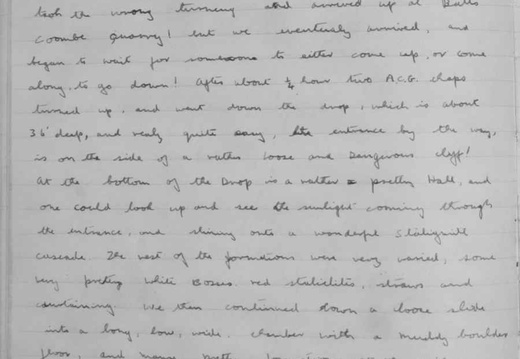 took the wrong turning and arrived up at Balls
Coombe Quarry! but we eventually arrived, and
began to wait for someone to either come up, or come
along, to go down! After about ¼ hour two A.C.G. chaps
turned up, and went down the drop, which is about
36' deep, and realy quite easy, the entrance by the way,
is on the side of a rather loose and Dangerous clyf!
At the bottom of the Drop is a rather pretty Hall, and
one could look up and see the sunlight coming through
the entrance, and shining onto a wonderful Stalagmite
cascade. The rest of the formations were very varied, some
very pretty white Bosses. red stalactites, straws and
curtaining. We then continued down a loose slide
into a long, low, wide. chamber with a muddy boulder
floor, and many